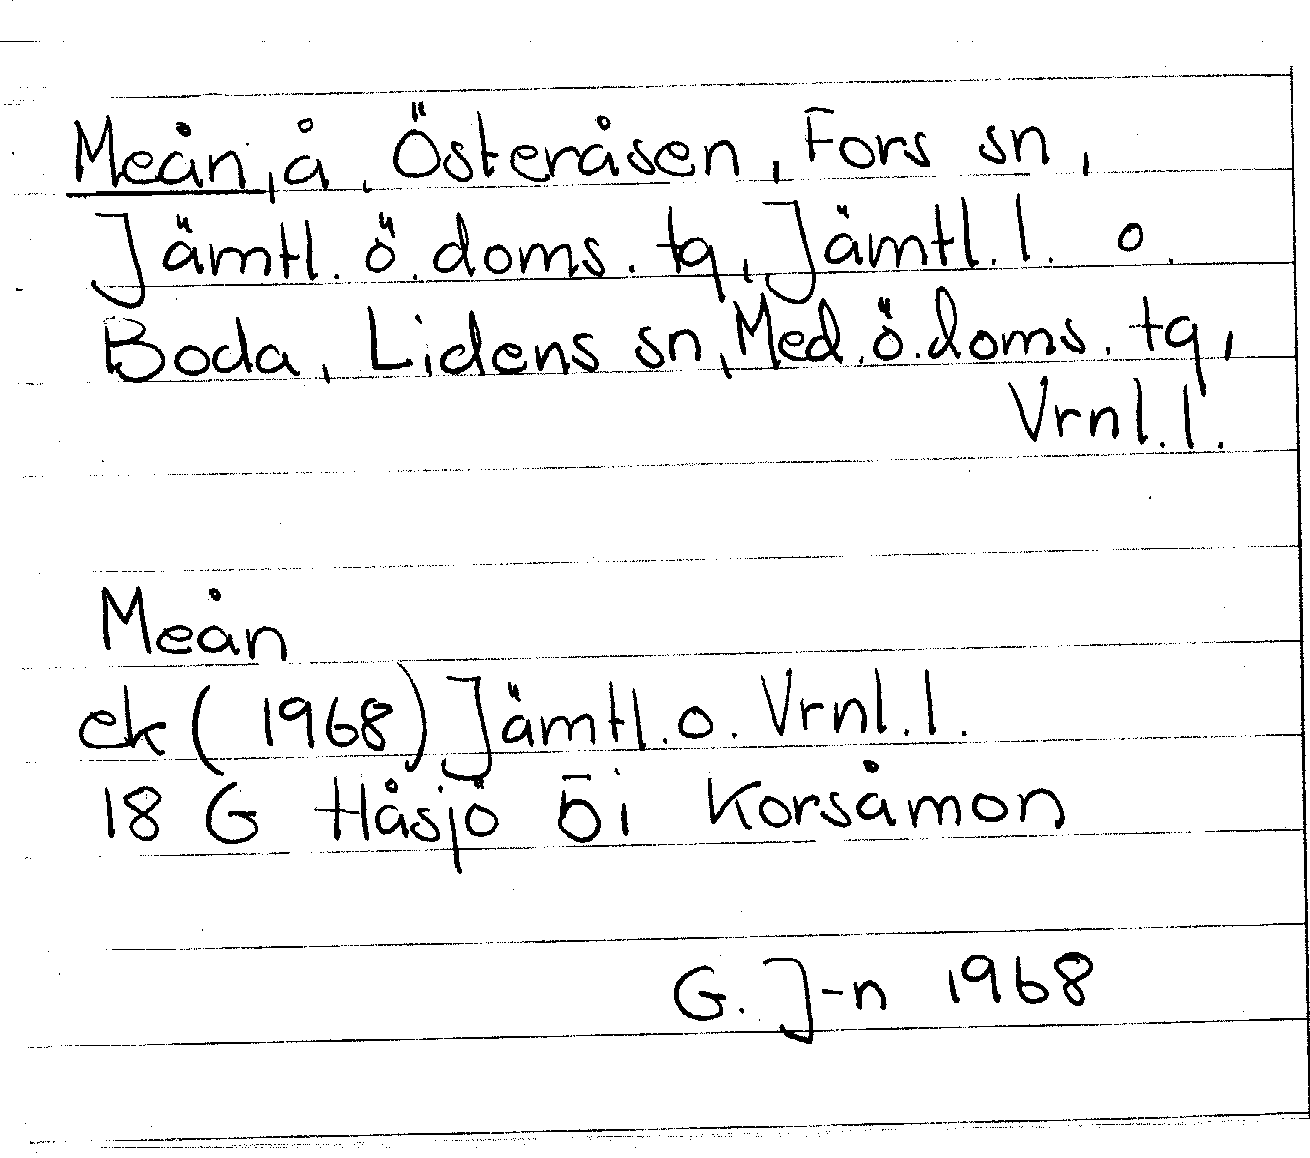 Meån, å, Österåsen, Fors sn,
Jämtl. ö. doms. tg, Jämtl. l. o.
Boda, Lidens sn, Med. ö. doms. tg,
Vrnl. l.
Meån
ek (1968) Jämtl. o. Vrnl. l.
18 G Håsjö 5i Korsåmon
G. J-n 1968